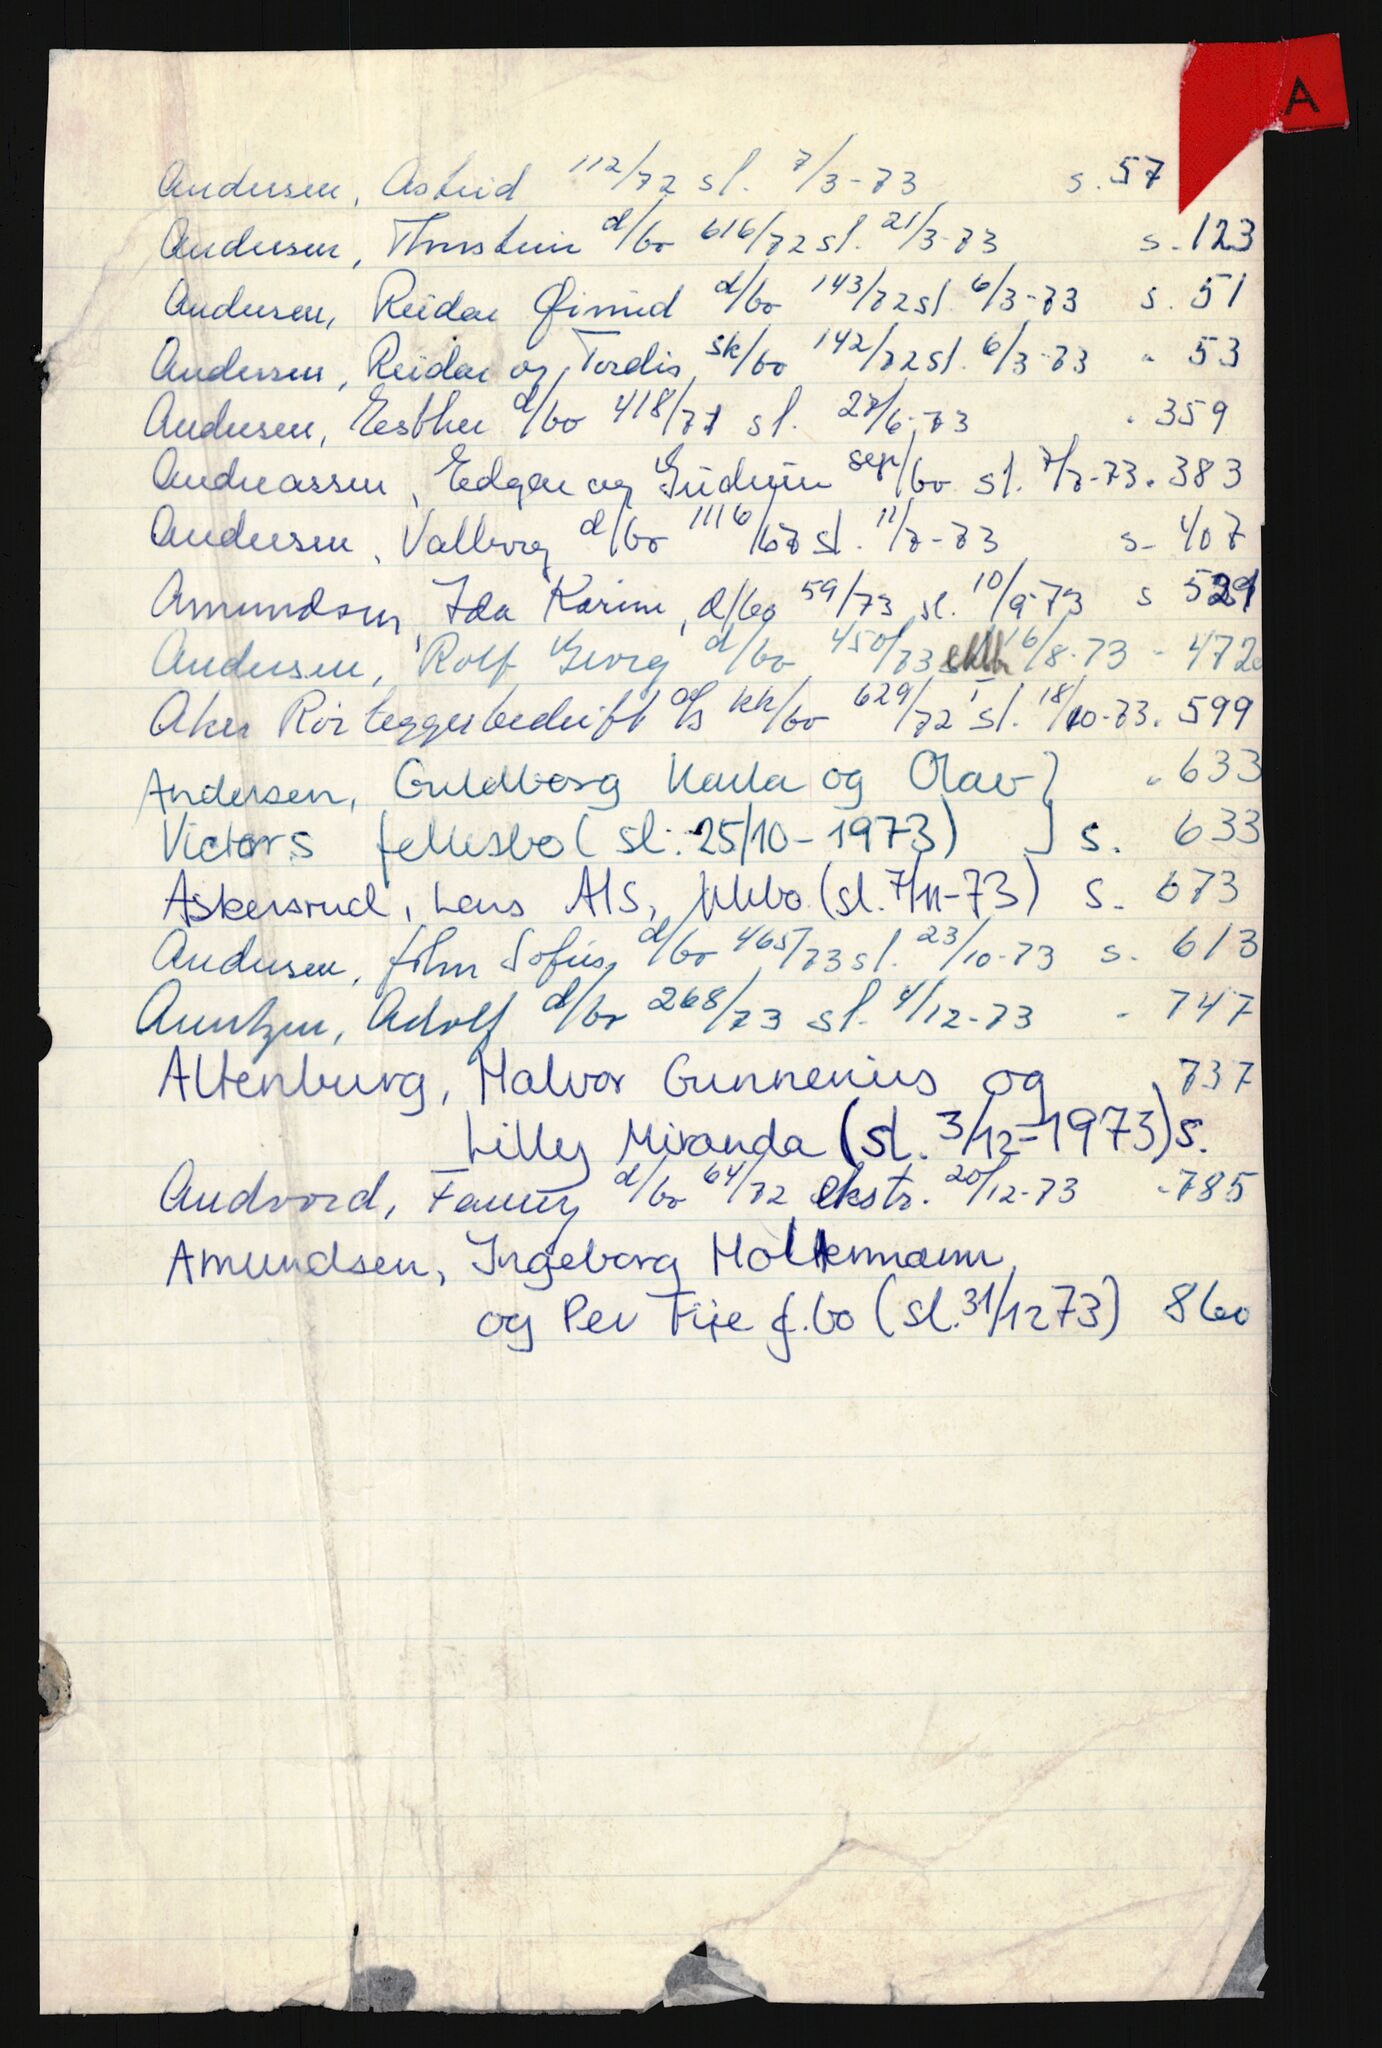 A
Andersen, Astrid 112/72 sl. 7/3-73 s. 57
Andersen, Thorstein d/bo 616/72 sl. 21/3-73 s. 123
Andersen, Reidar Øivind d/bo 143/72 sl. 6/3-73 s. 51
Andersen, Reidar og Tordis sk/bo 142/72 sl. 6/3-73 " 53
Andersen, Esther d/bo 418/71 sl. 27/6-73 " 359
Andreassen, Edgar og Gudrun sep/bo sl. 7/7-73 " 383
Andersen, Valborg d/bo 1116/67 sl. 11/7-73 s. 407
Amundsen, Ida Karine, d/bo 59/73 sl. 10/9-73 s 529
Andersen, Rolf Georg d/bo 450/73 16/8-73 - 472
Aker Rörleggerbedrift a/s kk/bo 629/72 sl. 18/10-73. 599
Andersen, Guldborg Karla og Olav } " 633
Victors fellesbo (sl. 25/10-1973) } s. 633
Askersrud, Lars A/S, kkbo (sl. 7/11-73) s. 673
Andersen, John Sofus, d/bo 465/73 sl. 23/10-73 s. 613
Arntzen, Adolf d/bo 268/73 sl. 4/12-73 - 747
Altenburg, Halvor Gunnenius og 737
Lilly Miranda (sl. 3/12-1973) s.
Andvord, Fanny d/bo 64/72 ekstr. 20/12-73 - 785
Amundsen, Ingeborg
og Per f.bo (sl. 31/12 73) 860